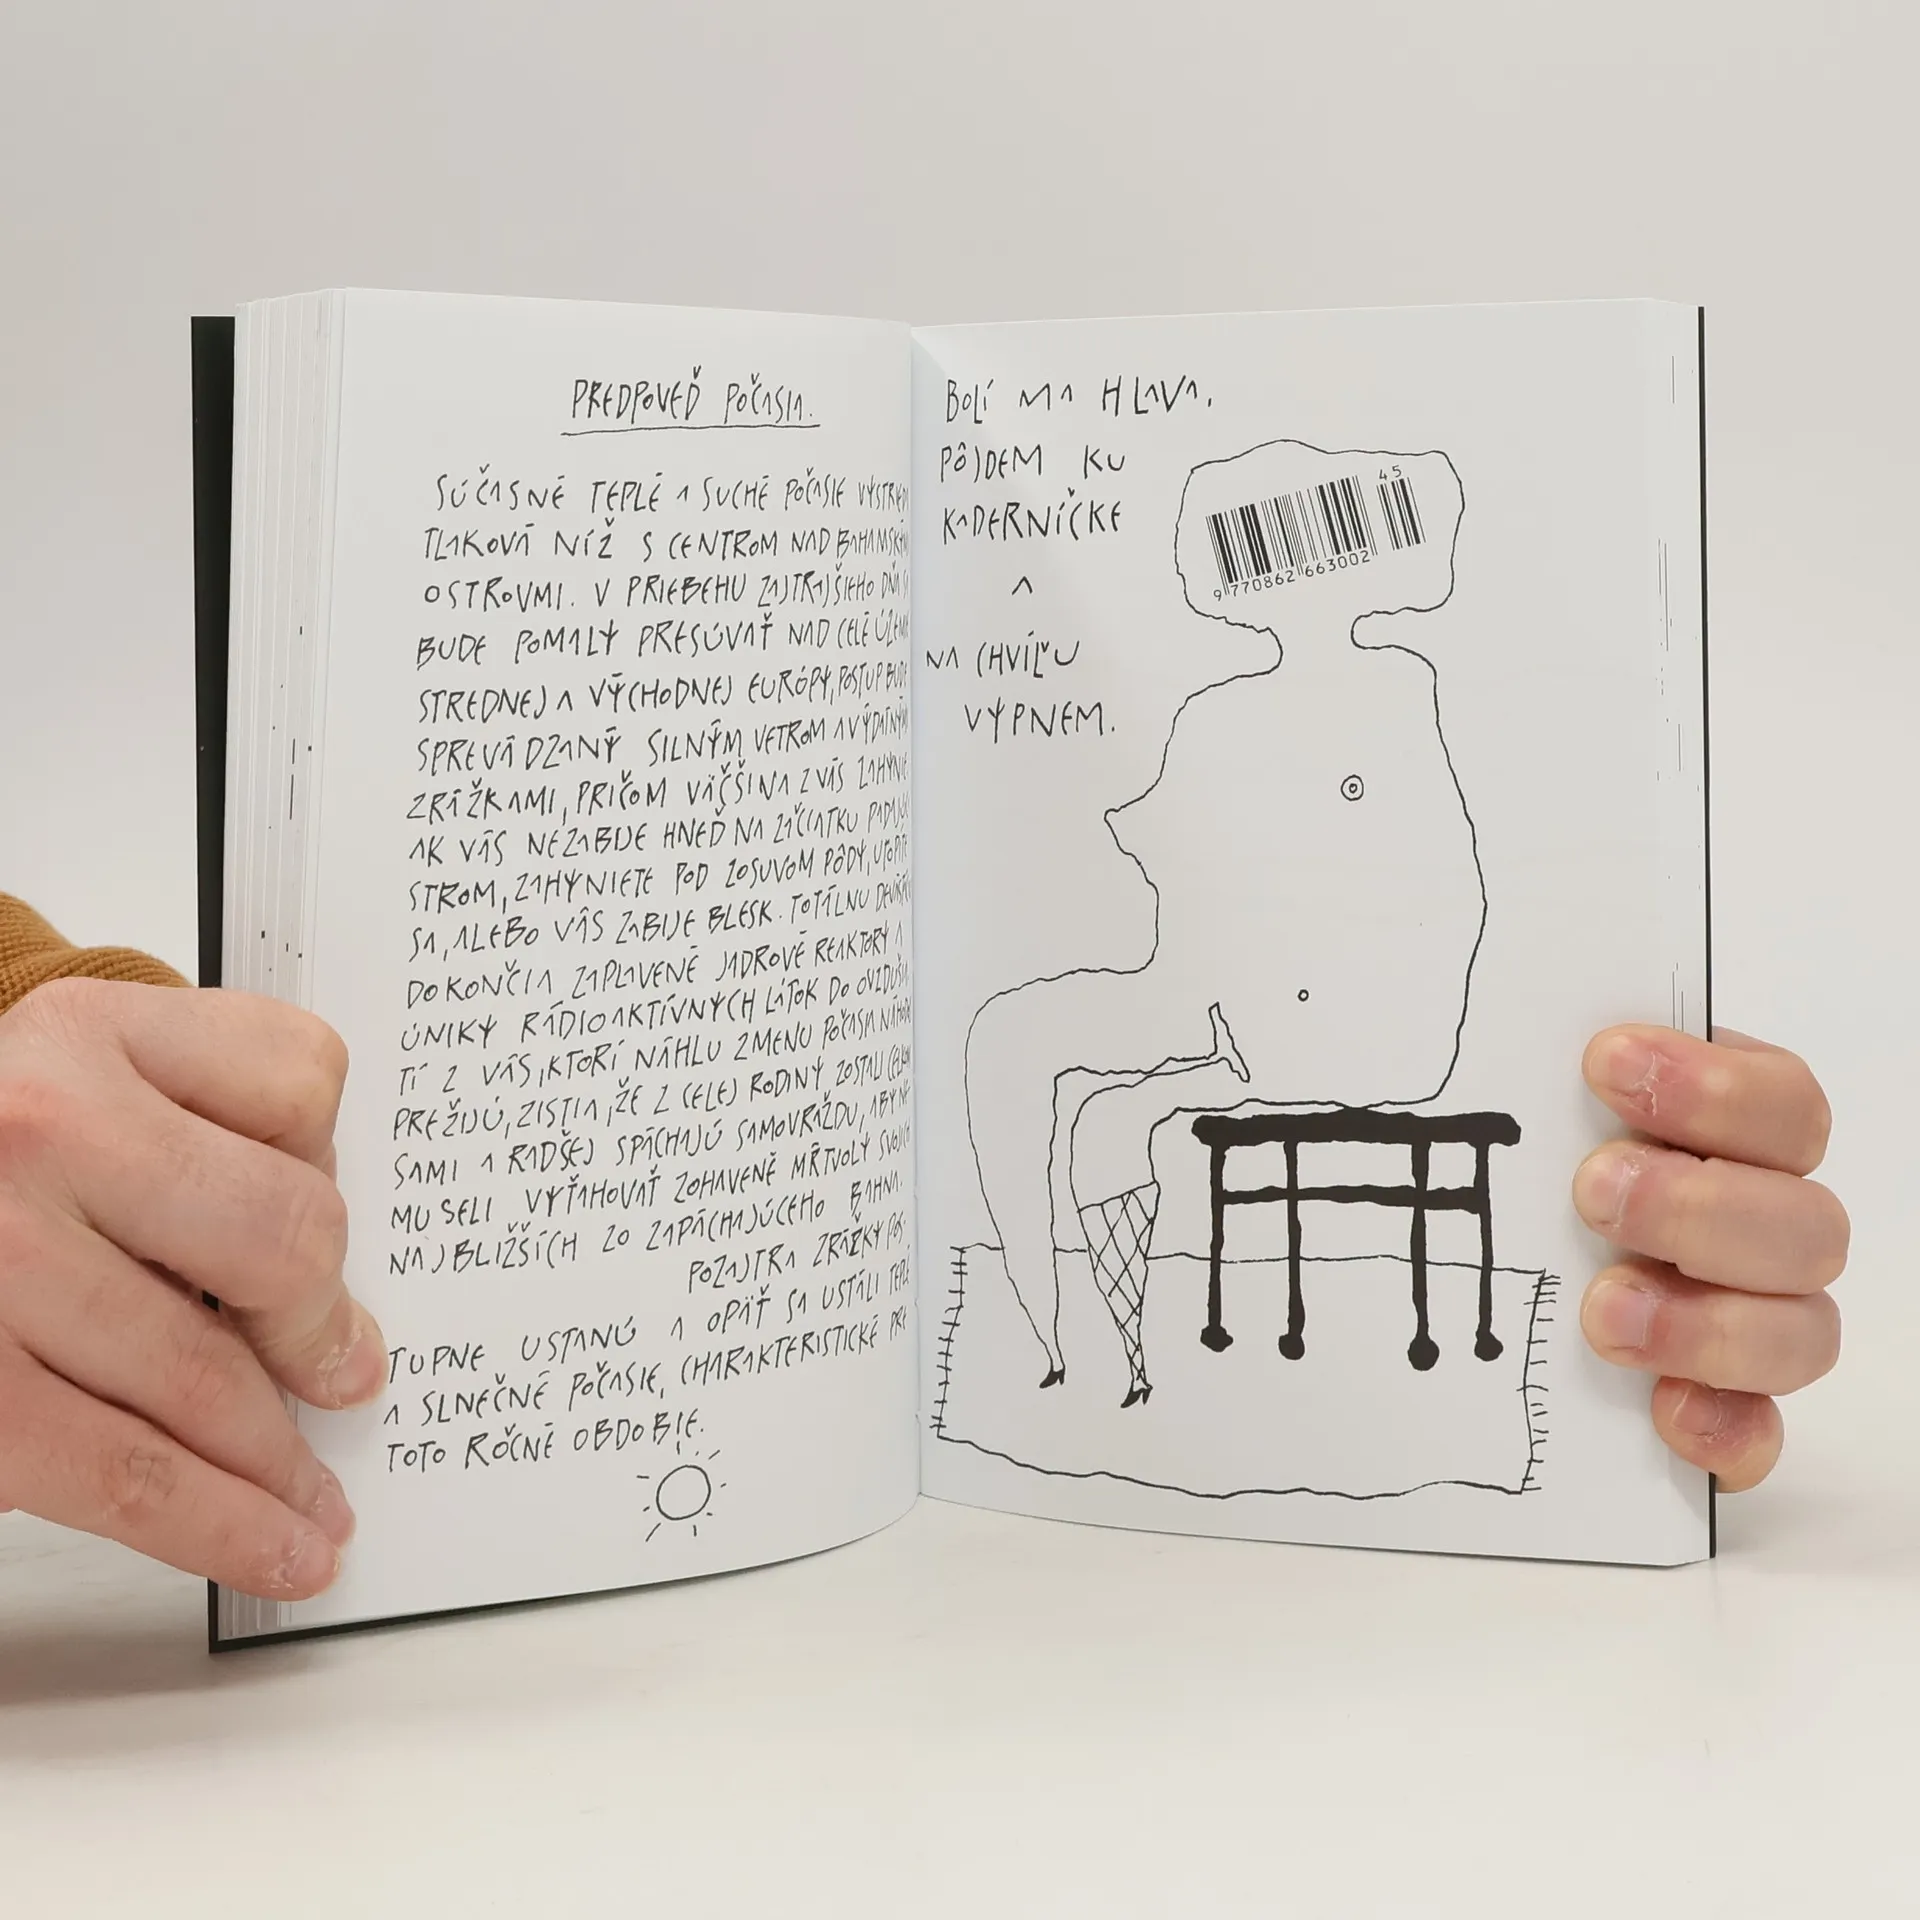 PREDPOVEĎ POČASIA.
SÚČASNÉ TEPLÉ A SUCHÉ POČASIE
TLAKOVÁ NÍŽ S CENTROM NAD BAHAMSKÝMI
OSTROVMI. V PRIEBEHU ZAJTRAJŠIEHO DŇA SA
BUDE POMALY PRESÚVAŤ NAD CELÉ ÚZEMIE
STREDNEJ A VÝCHODNEJ EURÓPY, POSTUP BUDE
SPREVÁDZANÝ SILNÝM VETROM A VÝDATNÝMI
ZRÁŽKAMI, PRIČOM VÄČŠINA Z VÁS ZAHYNIE.
AK VÁS NEZABIJE HNEĎ NA ZAČIATKU PADAJÚCI
STROM, ZAHYNIETE POD ZOSUVOM PÔDY, UTOPÍTE
SA, ALEBO VÁS ZABIJE BLESK. TOTÁLNU
DOKONČIA ZAPLAVENÉ JADROVÉ REAKTORY A
ÚNIKY RÁDIOAKTÍVNYCH LÁTOK DO OVZDUŠIA.
TÍ Z VÁS, KTORÍ NÁHLU ZMENU POČASIA NÁHODOU
PREŽIJÚ, ZISTIA, ŽE Z CELEJ RODINY ZOSTALI CELKOM
SAMI A RADŠEJ SPÁCHAJÚ SAMOVRAŽDU, ABY NE-
MUSELI VYŤAHOVAŤ ZOHAVENÉ MŔTVOLY SVOJICH
NAJBLIŽŠÍCH ZO ZAPÁCHAJÚCEHO BAHNA.
POZAJTRA ZRÁŽKY POS-
TUPNE USTANÚ A OPÄŤ SA USTÁLI TEPLÉ
A SLNEČNÉ POČASIE, CHARAKTERISTICKÉ PRE
TOTO ROČNÉ OBDOBIE.
BOLÍ MA HLAVA.
PÔJDEM KU
KADERNÍČKE
A
NA CHVÍĽU
VYPNEM.
45
9 770862 663002